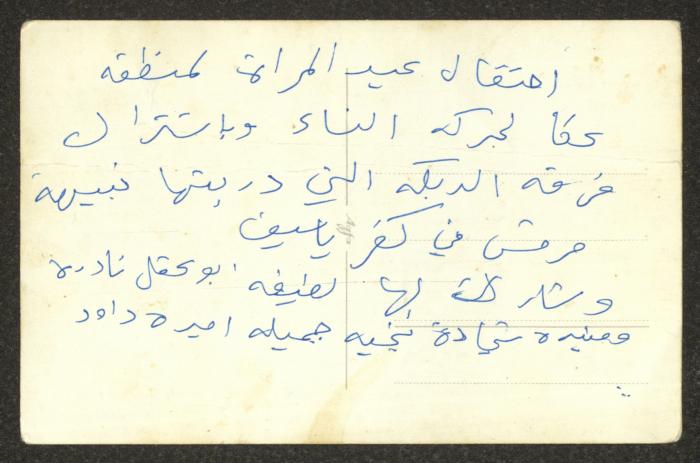 احتفال عيد المراة لمنطقة
عكا لحركه النساء وباشتراك
فرقه الدبكه التي دربتها نبيهة
مرقس في كفر ياسيف
وشاركت لها لطيفه ابو عقل نادره
ومنيره شحادة نجيبه جميله اميره داود